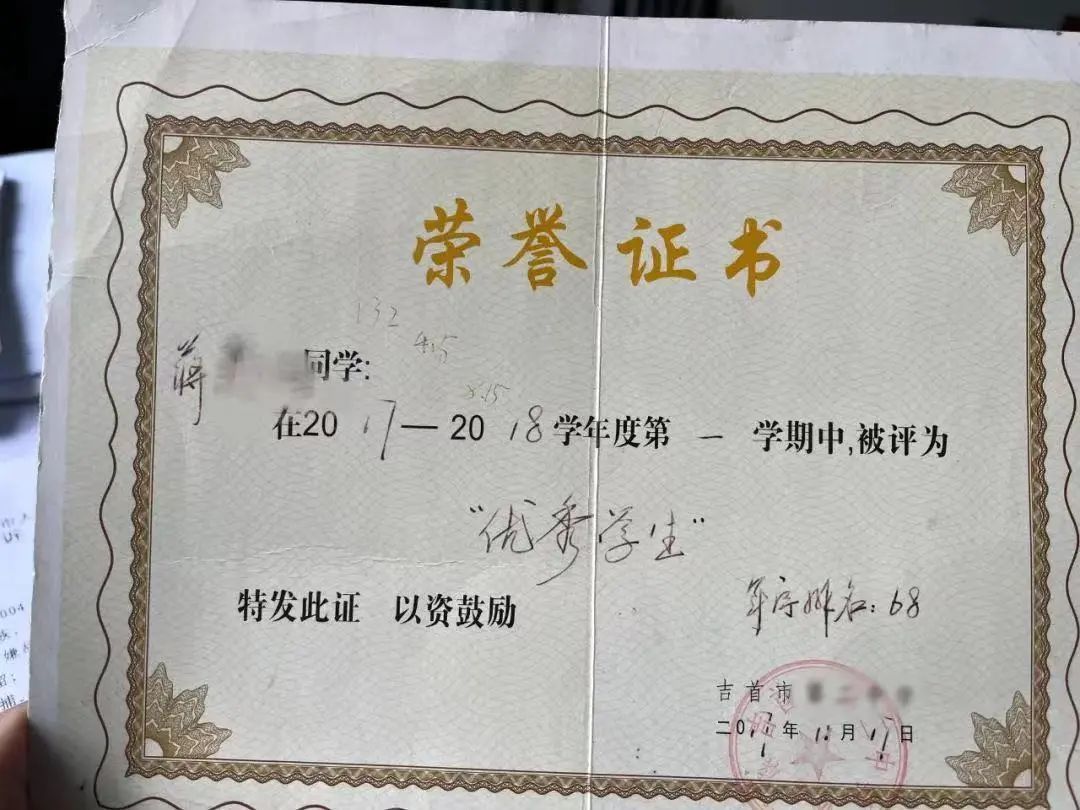 荣誉证书
蒋 同学:
132
在2017—2018学年度第一学期中,被评为
"优秀学生"
特发此证 以资鼓励
年序排名:68
吉首市
二0一七年11月17日